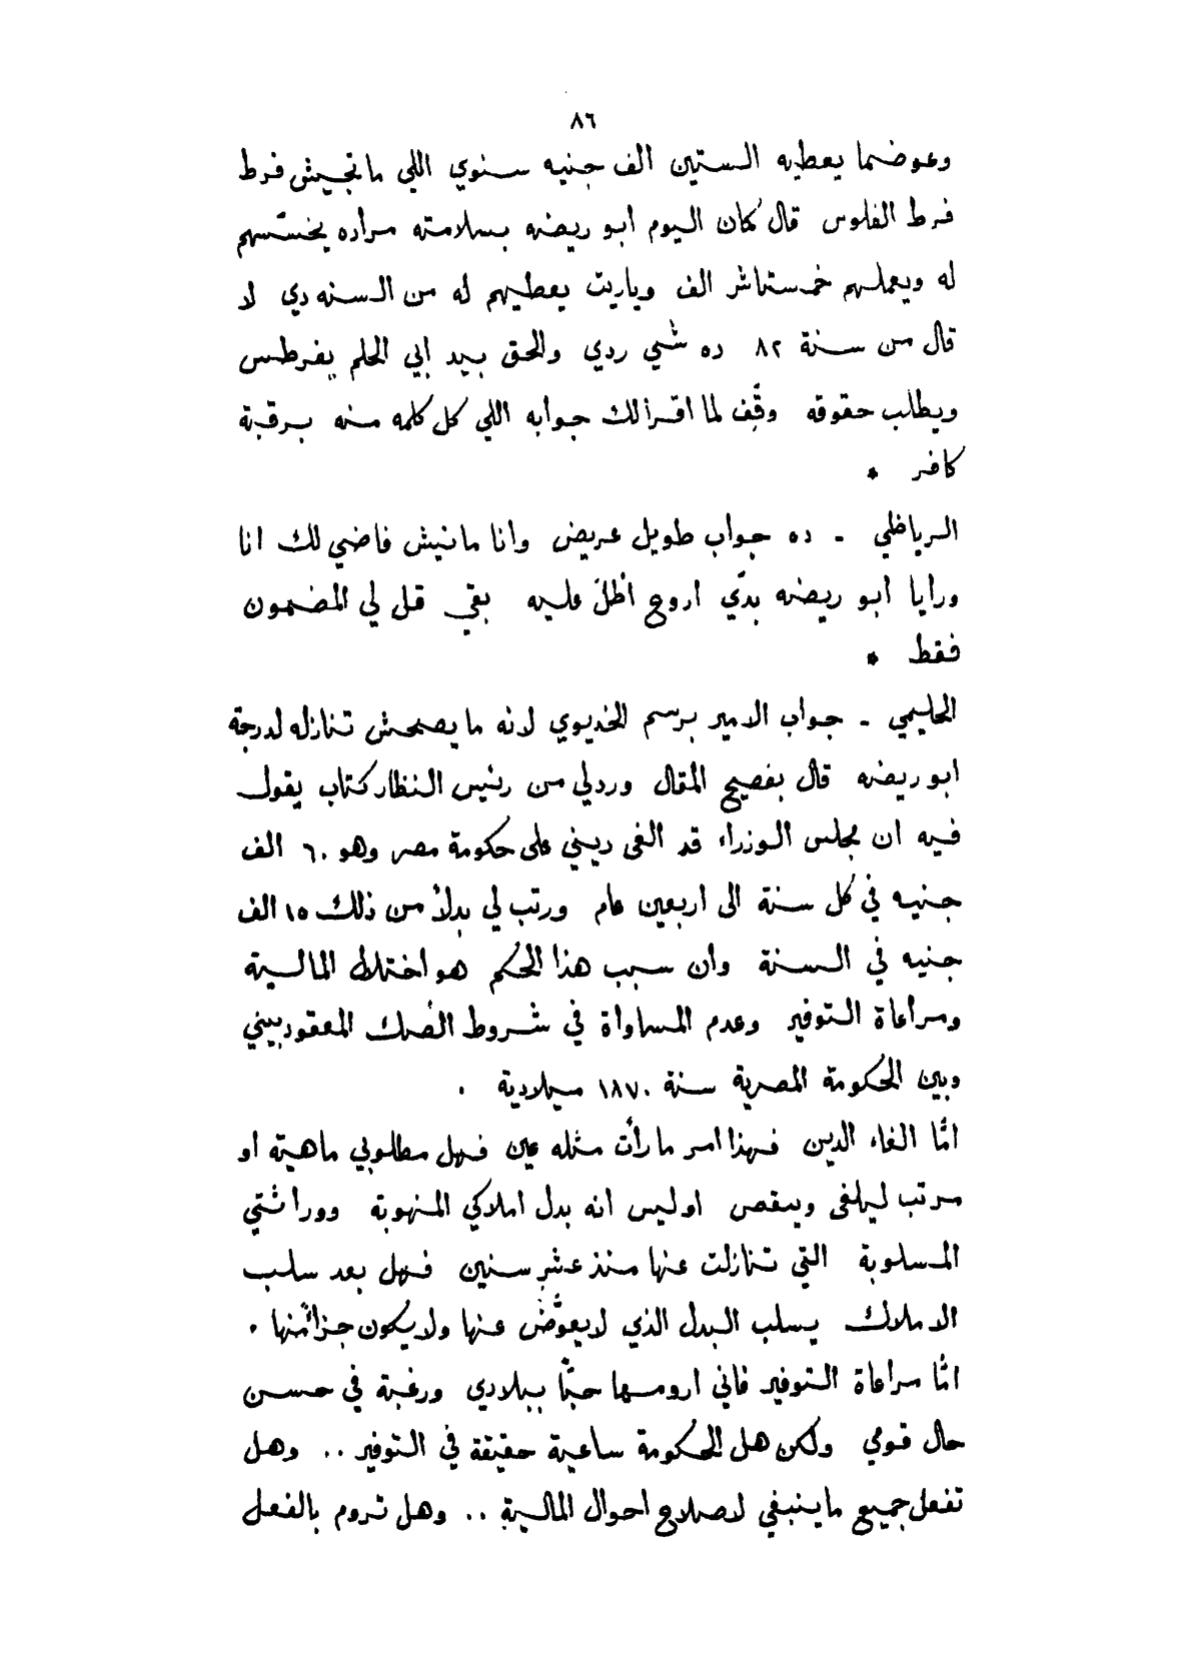 ٨٦
وعوضما يعطيه الستين الف جنيه سنوي اللي ماتجيش فرط
فرط الفلوس قال كمان اليوم ابو ريضه بسلامته مراده يخسّسهم
له ويعملهم خمستاشر الف وياريت يعطيهم له من السنه دي لا
قال من سنة ٨٢ ده شي ردي والحق بيد ابي الحلم يفرطس
ويطلب حقوقه وقّف لما اقرا لك جوابه اللي كل كلمه منه برقبة
كافر *
الرياظلي - ده جواب طويل عريض وانا مانيش فاضي لك انا
ورايا ابو ريضه بدّي اروح اظلّ عليه بقي قل لي المضمون
فقط *
الحليمي - جواب الامير برسم الخديوي لانه ما يصحش تنازله لدرجة
ابو ريضه قال بفصيح المقال وردلي من رئيس النظار كتاب يقول
فيه ان مجلس الوزراء قد الغى ديني على حكومة مصر وهو ٦٠ الف
جنيه في كل سنة الى اربعين عام ورتب لي بدلاً من ذلك ١٥ الف
جنيه في السنة وان سبب هذا الحكم هو اختلال المالية
ومراعاة التوفير وعدم المساواة في شروط الصك المعقود بيني
وبين الحكومة المصرية سنة ١٨٧٠ ميلادية .
امّا الغاء الدين فهذا امر ما رأت مثله عين فهل مطلوبي ماهية او
مرتب ليلغى وينقص اوليس انه بدل املاكي المنهوبة ووراثتي
المسلوبة التي تنازلت عنها منذ عشر سنين فهل بعد سلب
الاملاك يسلب البدل الذي لايعوّض عنها ولا يكون جزأ منها .
امّا مراعاة التوفير فاني ارومها حبّاً ببلادي ورغبة في حسن
حال قومي ولكن هل الحكومة ساعية حقيقة في التوفير .. وهل
تفعل جميع ماينبغي لاصلاح احوال المالية .. وهل تروم بالفعل